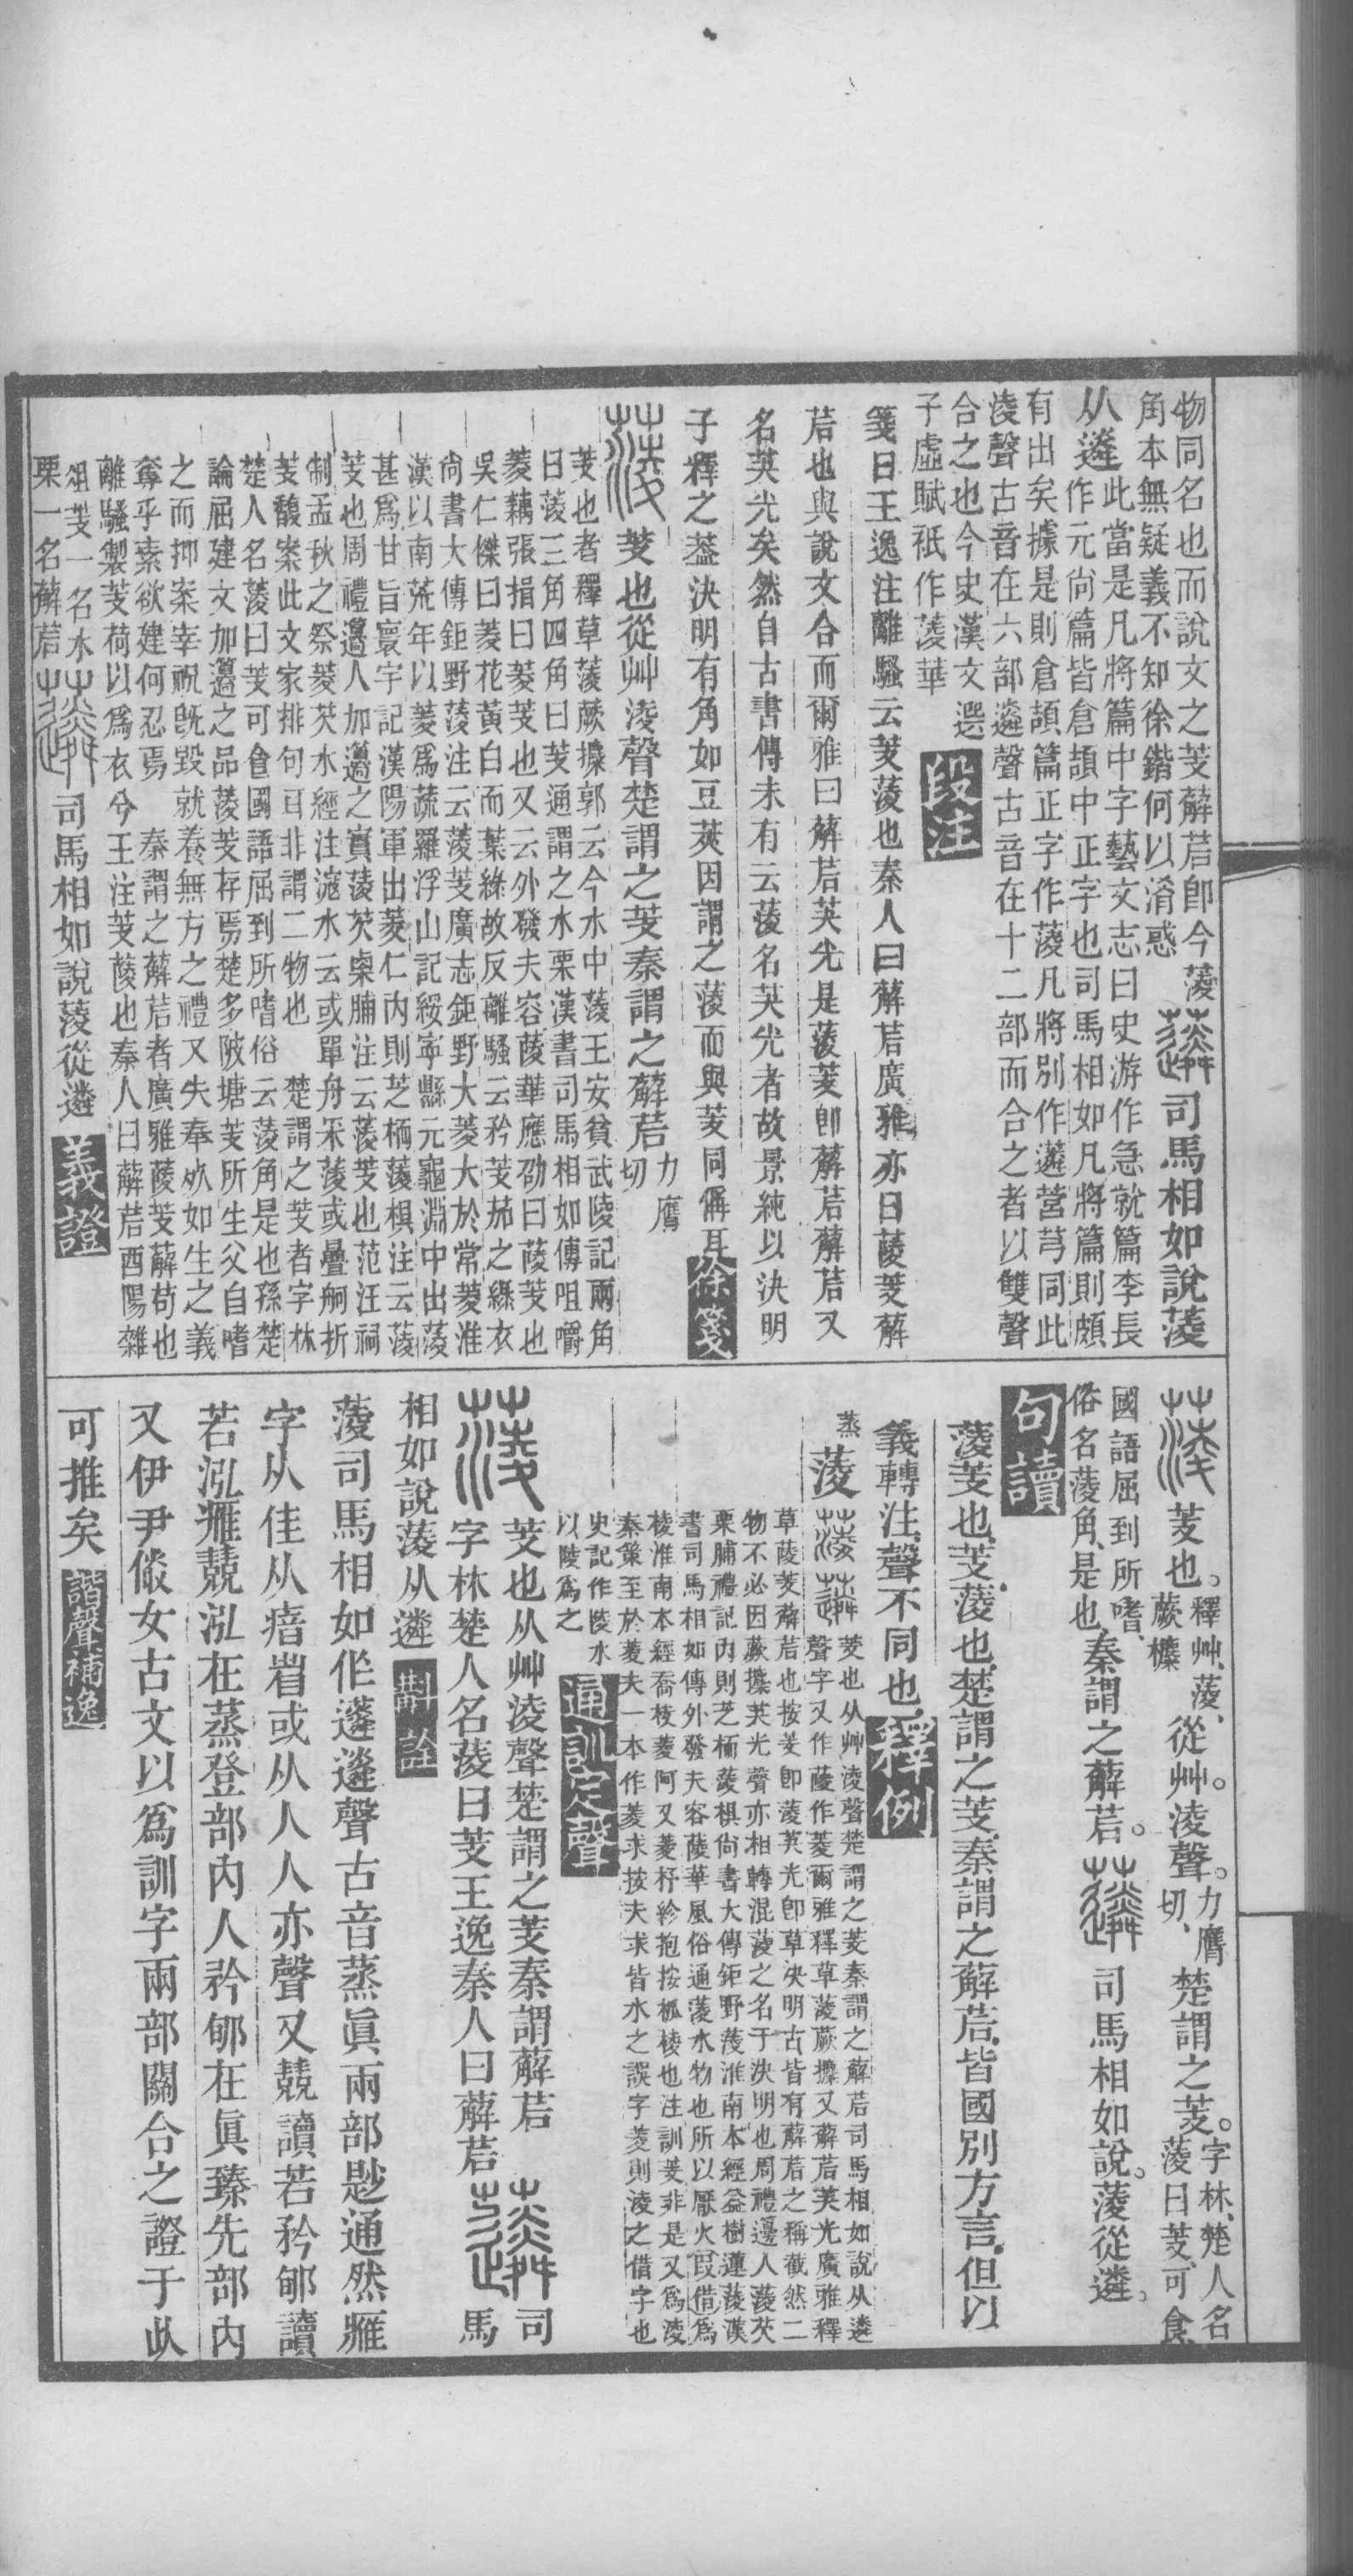 物同名也而說文之芰薢茩卽今蔆
角本無疑義不知徐鍇何以淆惑
司馬相如說蔆
从遴此當是凡將篇中字藝文志曰史游作急就篇李長
作元尚篇皆倉頡中正字也司馬相如凡將篇則頗
有出矣據是則倉頡篇正字作蔆凡將別作䔖營芎同此
淩聲古音在六部遴聲古音在十二部而合之者以雙聲
合之也今史漢文選
子虛賦衹作蔆華
段注
箋曰王逸注離騷云芰蔆也秦人曰薢茩廣雅亦曰蔆芰薢
茩也與說文合而爾雅曰薢茩芵光是蔆芰卽薢茩薢茩又
名芵光矣然自古書傳未有云蔆名芵光者故景純以決明
子釋之葢決明有角如豆莢因謂之蔆而與芰同偁耳
徐箋
芰也從艸淩聲楚謂之芰秦謂之薢茩
力膺
切
芰也者釋草蔆蕨攗郭云今水中蔆王安貧武陵記兩角
曰蔆三角四角曰芰通謂之水栗漢書司馬相如傳咀嚼
菱藕張揖曰菱芰也又云外發夫容蔆華應劭曰蔆芰也
吳仁傑曰菱花黃白而葉綠故反離騷云衿芰茄之綠衣
尚書大傳鉅野蔆注云蔆芰廣志鉅野大菱大於常菱淮
漢以南荒年以菱爲蔬羅浮山記綏寧縣元龜淵中出蔆
甚爲甘旨寰宇記漢陽軍出菱仁內則芝栭蔆椇注云蔆
芰也周禮籩人加籩之實蔆芡㮚脯注云蔆芰也范汪祠
制孟秋之祭菱芡水經注滱水云或單舟采蔆或疊舸折
芰馥案此文家排句耳非謂二物也 楚謂之芰者字林
楚人名蔆曰芰可食國語屈到所嗜俗云蔆角是也孫楚
論屈建文加籩之品蔆芰存焉楚多陂塘芰所生父自嗜
之而抑案宰祝旣毀就養無方之禮又失奉死如生之義
奪乎素欲建何忍焉 秦謂之薢茩者廣雅蔆芰薢茍也
離騷製芰荷以爲衣兮王注芰蔆也秦人曰薢茩酉陽雜
俎芰一名水
栗一名薢茩
司馬相如說蔆從遴
義證
芰也。
釋艸、蔆、
蕨攗
從艸。淩聲。
力膺
切、
楚謂之芰。
字林、楚人名
蔆曰芰、可食、
國語屈到所嗜、
俗名蔆角、是也、
秦謂之薢茩。
司馬相如說。蔆從遴。
句讀
蔆芰也、芰、蔆也、楚謂之芰、秦謂之薢茩、皆國別方言、但以
義轉注、聲不同也、
釋例
蒸
蔆
芰也从艸淩聲楚謂之芰秦謂之薢茩司馬相如說从遴
聲字又作䔖作菱爾雅釋草蔆蕨攗又薢茩芵光廣雅釋
草蔆芰薢茩也按芰卽蔆芵光卽草決明古皆有薢茩之稱截然二
物不必因蕨攗芵光聲亦相轉混蔆之名于決明也周禮籩人蔆芡
栗脯禮記內則芝栭蔆椇尚書大傳鉅野蔆淮南本經益樹蓮蔆漢
書司馬相如傳外發夫容蔆華風俗通蔆水物也所以厭火叚借爲
棱淮南本經喬枝菱阿又菱杼紾抱按柧棱也注訓芰非是又爲淩
秦策至於菱夫一本作菱求按夫求皆水之誤字菱則淩之借字也
史記作陵水
以陵爲之
通訓定聲
芰也从艸淩聲楚謂之芰秦謂薢茩
字林楚人名蔆曰芰王逸秦人曰薢茩
司馬
相如說蔆从遴
斠詮
蔆司馬相如作䔖遴聲古音蒸眞兩部尟通然䧹
字从隹从瘖省或从人人亦聲又兢讀若矜郇讀
若泓䧹兢泓在蒸登部內人矜郇在眞臻先部內
又伊尹倓女古文以爲訓字兩部關合之證于此
可推矣
諧聲補逸